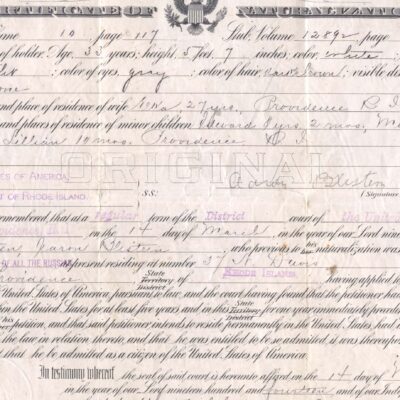 CERTIFICATE OF NATURALIZATION
ume 10 page 117 Stub, Volume 12892 page
of holder. Age, 33 years; height, 5 feet, 7 inches; color, white
color of eyes, gray color of hair, visible dis
and place of residence of wife 27 yrs, Providence R I
and places of residence of minor children Edward yrs, 2 mos,
Lillian 10 mos. Providence R I
ORIGINAL
ES of America,
T OF RHODE ISLAND S.S.: Blistein
(Signature
emembered, that at a regular term of the District court of the United
on the 14 day of March in the year of our Lord nine
Blistein who previous to his naturalization was
OF ALL THE RUSSIAS at present residing at number 37 Davis
Providence State Territory of District RHODE ISLAND, having applied to
United States of America, pursuant to law, and the court having found that the petitioner had
United States for at least five years and in this State Territory District for one year immediately preced
his petition, and that said petitioner intends to reside permanently in the United States, had
the law in relation thereto, and that he was entitled to be so admitted, it was thereu
that he be admitted as a citizen of the United States of America.
In testimony whereof the seal of said court is hereunto affixed on the 14 day of
in the year of our Lord nineteen hundred and fourteen and of our Ind